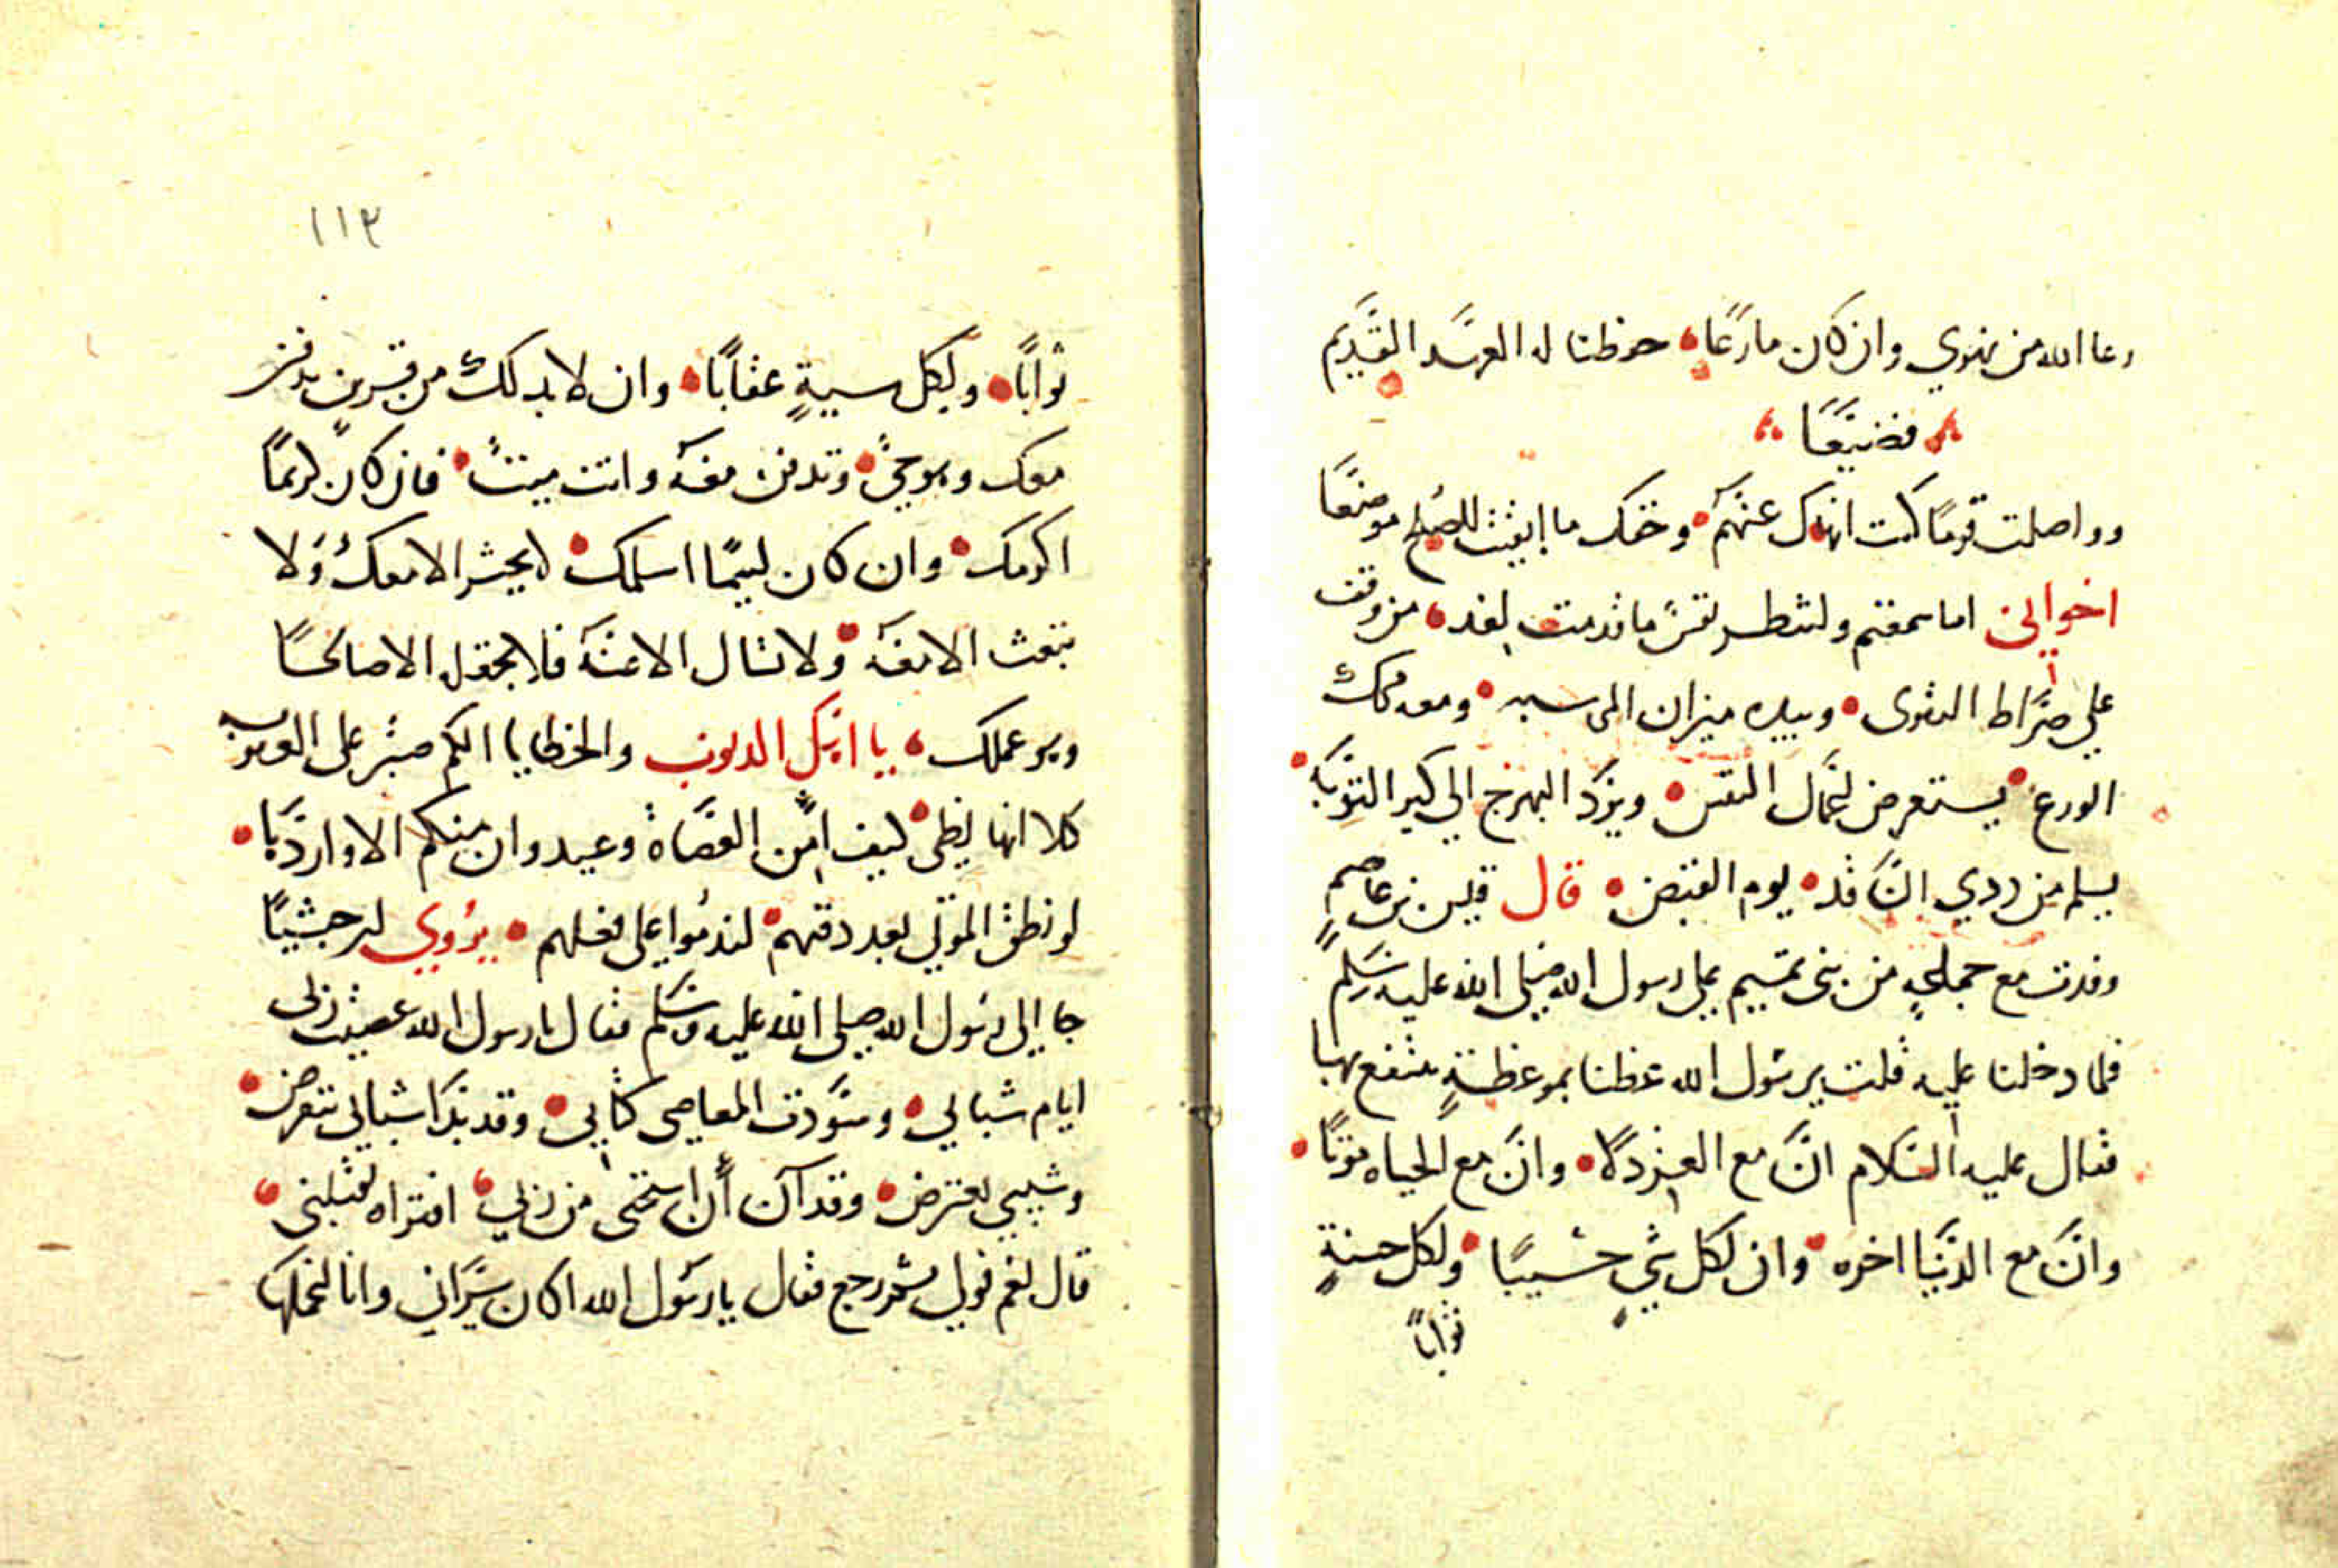 رعا الله من نهوي وان كان ما رعا حفظنا له العهد القديم
فضيعا
وواصلت قوما كنت انهاك عنهم وحقك ما ابقيت للصلح موضعا
اخواني اما سمعتم ولتنظر نفس ما قدمت لغد من وقف
علي صراط التقوى وبيده ميزان المحاسبه ومعه محك
الورع يستعرض اعمال النفس ويرد البهرج الي كير التوبة
يسلم من ردي النا قد يوم القبض قال قيس بن عاصم
وفدت مع جماعة من بني تميم علي رسول الله صلى الله عليه وسلم
فلما دخلنا عليه قلت يرسول الله عظنا بموعظة ننتفع بها
فقال عليه السلام ان مع العز ذلا وان مع الحياه موتا
وان مع الدنيا اخره وان لكل شي حسيبا ولكل حسنة
ثوابا
١١٣
ثوابا ولكل سيية عقابا وان لا بد لك من قرين يدفن
معك وهو حي وتدفن معه وانت ميت فان كان كريما
اكرمك وان كان ليما اسلمك لا يحشر الا معك ولا
تبعث الا معه ولا تسال الا عنه فلا تجعله الا صالحا
وهو عملك يا اهل الذنوب والخطايا الكم صبر على العقوبه
كلا انها لظى كيف امن العصاة وعيد وان منكم الا واردها
لو نطق الموتي بعد دفنهم لندموا على فعلهم يروي ان حبشيا
جا الي رسول الله صلى الله عليه وسلم فقال يا رسول الله عصيت ربى
ايام شبابي وسودت المعاصي كتابي وقد بدا شبابي ينقرض
وشيبي يعترض وقد آن أن استحى من ربي افتراه يقبلني
قال نعم فولي ثم رجع فقال يا رسول الله اكان يراني وانا اعملها